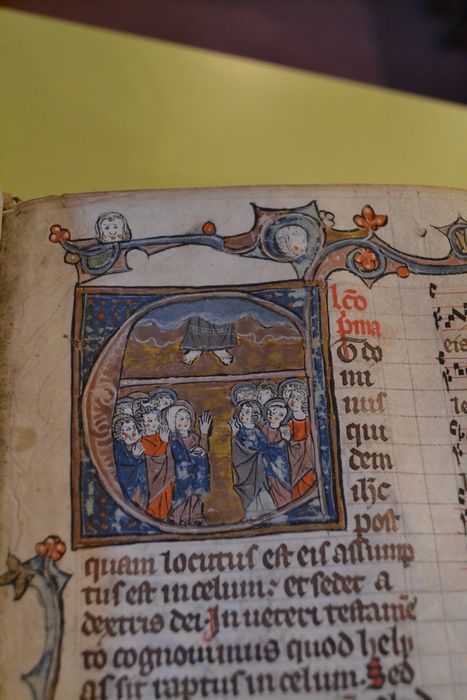 lcō
p̄ma
T do
mi
nus
qui
dem
ih̄c
post
quam locutus est eis assump
tus est in celum: et sedet a
dextris dei. In ueteri testam̄e
to cognouimus quod hely
as sit raptus in celum. Sed
eis